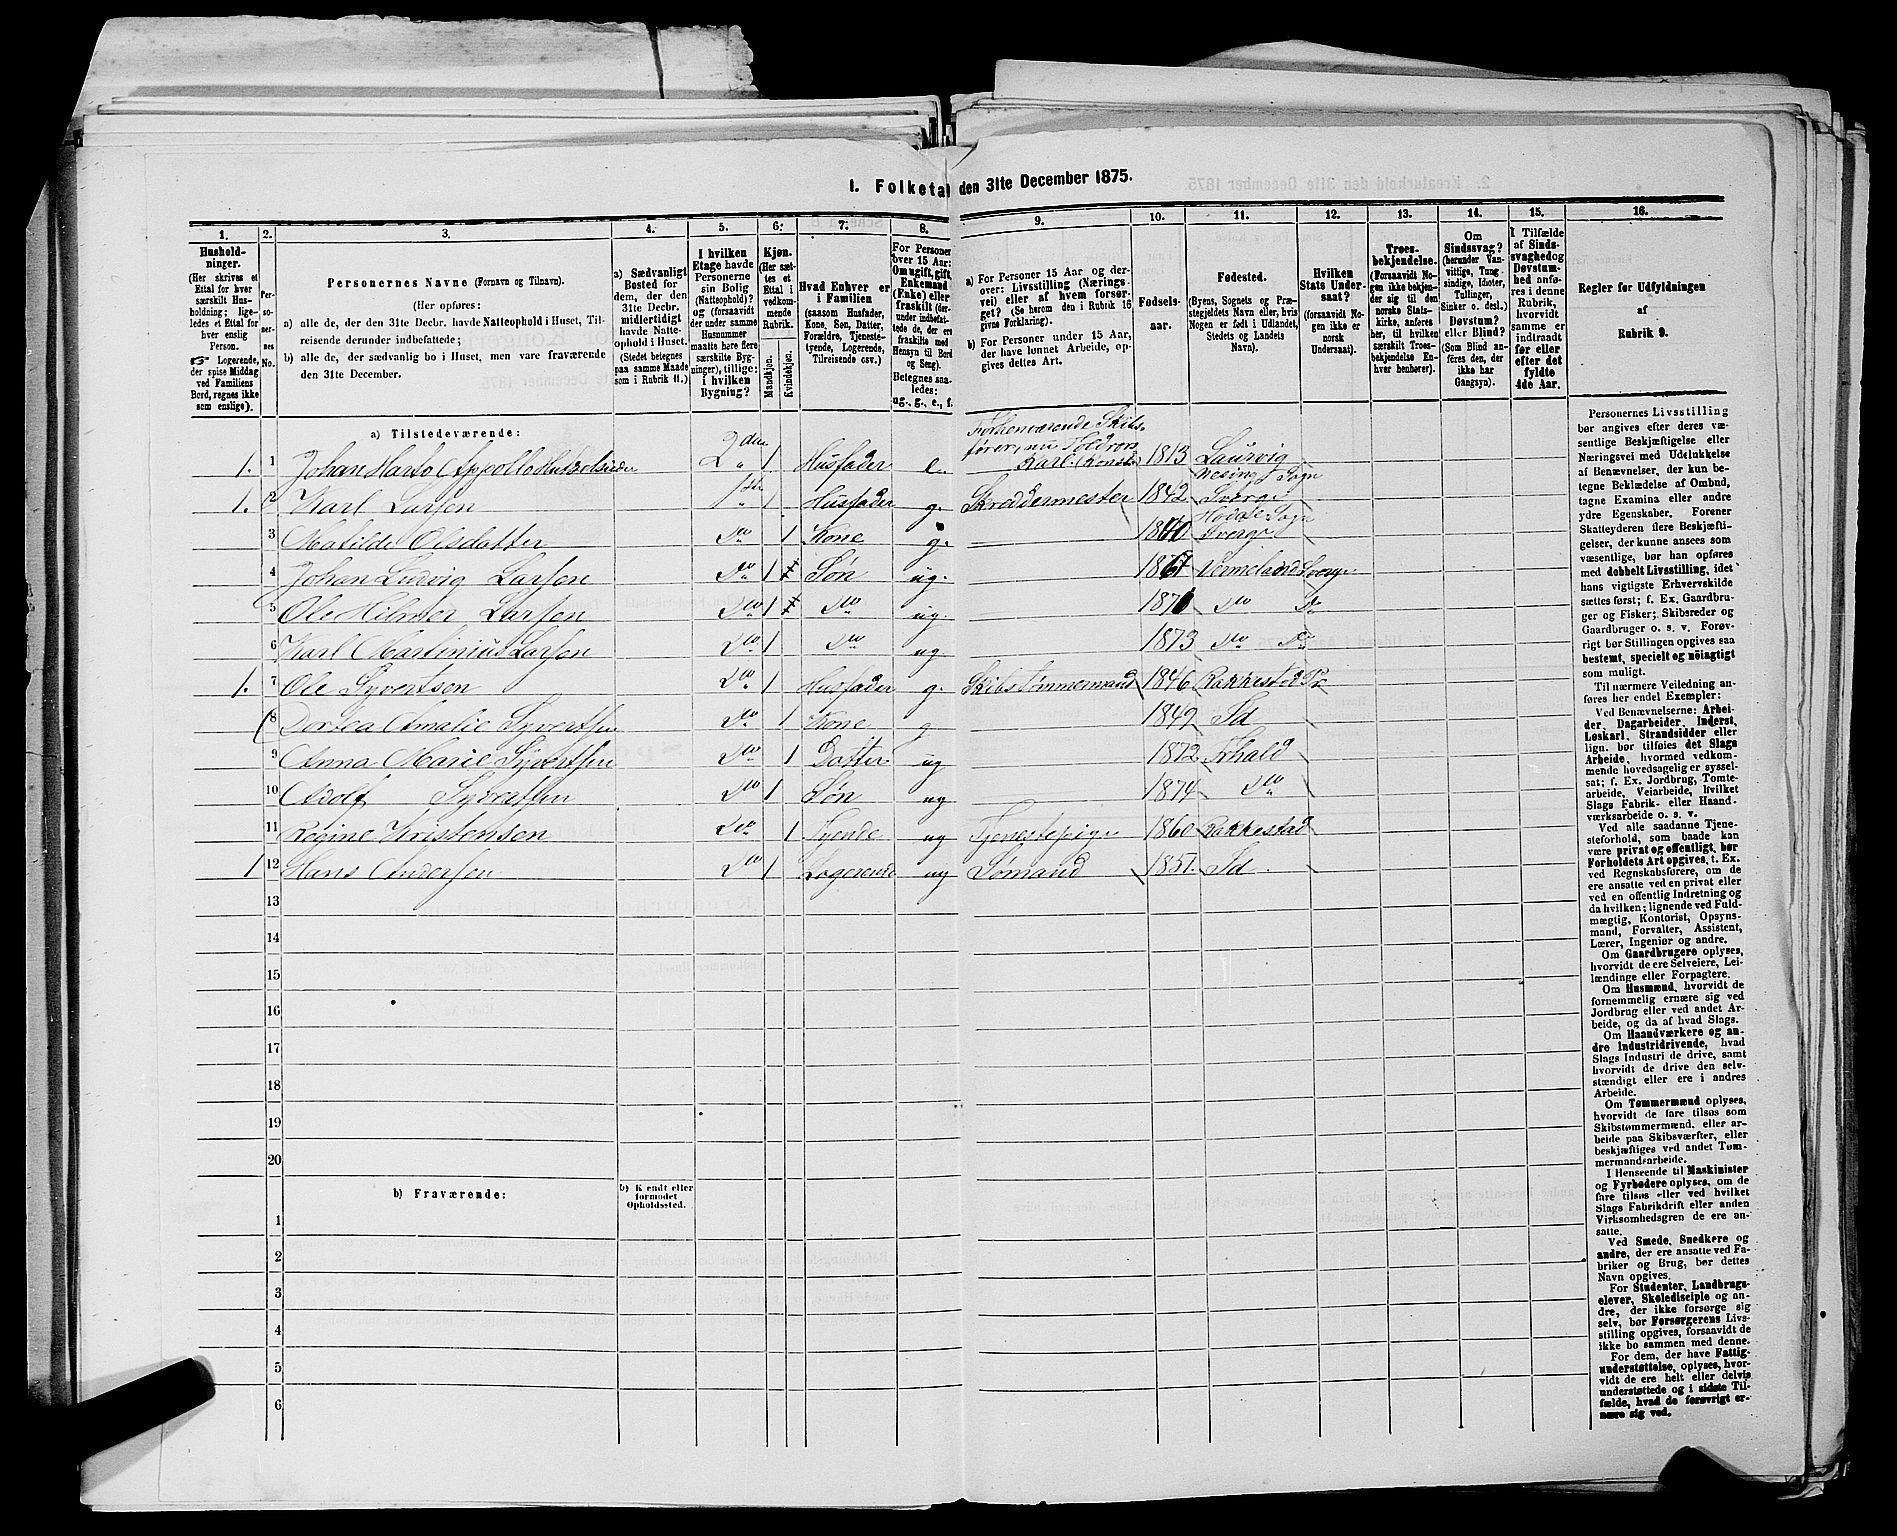 1. Folketal den 31te December 1875.
1. 2. 3. 4. 5. 6. 7. 8. 9. 10. 11. 12. 13. 14. 15. 16.
Husholdninger.
(Her skrives et
Ettal for hver
særskilt Husholdning;
ligeledes et Ettal for
hver enslig
Person.
☞ Logerende,
der spise Middag
ved Familiens
Bord, regnes ikke
som enslige).
Personernes No.
Personernes Navne (Fornavn og Tilnavn).
(Her opføres:
a) alle de, der den 31te Decbr. havde Natteophold i Huset, Tilreisende derunder indbefattede;
b) alle de, der sædvanlig bo i Huset, men vare fraværende
den 31te December.
a) Sædvanligt
Bosted for
dem, der den
31te Decbr.
midlertidigt
havde Natteophold
i Huset.
(Stedet betegnes
paa samme Maade
som i Rubrik 11.)
I hvilken
Etage havde
Personerne
sin Bolig
(Natteophold)?
og (forsaavidt
der under samme
Husnummer
maatte høre flere
særskilte Bygninger),
tillige:
i hvilken
Bygning?
Kjøn.
(Her sættes
et Ettal i
vedkommende
Rubrik.
Mandkjøn.
Kvindekjøn.
Hvad Enhver er
i Familien
(saasom Husfader,
Kone, Søn, Datter,
Forældre, Tjenestetyende,
Logerende,
Tilreisende osv.)
For Personer
over 15 Aar:
Om ugift, gift,
Enkemand
(Enke) eller
fraskilt
Betegnes saaledes:
ug., g., e., f.
a) For Personer 15 Aar og derover:
Livsstilling (Næringsvei)
eller af hvem forsørget?
(Se herom den i Rubrik 16
givne Forklaring).
b) For Personer under 15 Aar,
der have lønnet Arbeide, opgives
dettes Art.
Fødselsaar.
Fødested.
(Byens, Sognets og Præstegjeldets
Navn eller, hvis
Nogen er født i Udlandet,
Stedets og Landets
Navn).
Hvilken
Stats Undersaat?
(forsaavidt Nogen
ikke er
norsk
Undersaat).
Troesbekjendelse.
(Forsaavidt Nogen
ikke bekjender
sig til den
norske Statskirke,
anføres
her, til hvilken
særskilt Troesbekjendelse
Enhver
henhører).
Om
Sindssvag?
(herunder Vanvittige,
Tungsindige,
Idioter,
Tullinger,
Sinker o. desl.)
Døvstum?
eller Blind?
(Som Blind anføres
den, der
ikke har
Gangsyn).
I Tilfælde
af Sindssvaghed
og
Døvstumhed
anføres
i denne
Rubrik,
hvorvidt
samme er
indtraadt
før eller
efter det
fyldte
4de Aar.
Regler for Udfyldningen
af
Rubrik 9.
a) Tilstedeværende:
1. 1 Johan 2den 1 Husfader e. Forhenværende Skibsfører, nu 1813 Laurvig
1. 2 Karl Larsen 1ste 1 Husfader g. Skreddermester 1842 Sogn Sverge
3 Matilde Olsdatter Do 1 Kone g. 1840 Sogn Sverge
4 Johan Ludvig Larsen Do 1 Søn ug. 1867 Vermeland Sverge
5 Ole Hilmer Larsen Do 1 Do ug. 1871 Do Do
6 Karl Martinius Larsen Do 1 Do ug 1873 Do Do
1. 7 Ole Syvertsen Do 1 Husfader g. Skibstømmermand 1846 Rakkestad Pr
8 Dortea Amalie Syvertsen Do 1 Kone g 1849 Id
9 Anna Marie Syvertsen Do 1 Datter ug 1872 Frhald
10 Adolf Syvertsen Do 1 Søn ug 1874 Do
11 Regine Kristensen Do 1 Tyende ug Tjenestepige 1860 Rakkestad
1 12 Hans Andersen Do 1 Logerende ug Sømand 1857. Id.
13
14
15
16
17
18
19
20
b) Fraværende:
b) Kjendt eller
formodet
Opholdssted.
1
2
3
4
5
6
Personernes Livsstilling
bør angives efter deres væsentlige
Beskjæftigelse eller
Næringsvei med Udelukkelse
af Benævnelser, der kun betegne
Beklædelse af Ombud,
tagne Examina eller andre
ydre Egenskaber. Forener
Skatteyderen flere Beskjæftigelser,
der kunne ansees som
væsentlige, bør han opføres
med dobbelt Livsstilling, idet
hans vigtigste Erhvervskilde
sættes først; f. Ex. Gaardbruger
og Fisker; Skibsreder og
Gaardbruger o. s. v. Forøvrigt
bør Stillingen opgives saa
bestemt, specielt og nøiagtigt
som muligt.
Til nærmere Veiledning anføres
her endel Exempler:
Ved Benævnelserne: Arbeider,
Dagarbeider, Inderst,
Løskarl, Strandsidder eller
lign. bør tilføies det Slags
Arbeide, hvormed vedkommende
hovedsagelig er sysselsat;
f. Ex. Jordbrug, Tomtearbeide,
Veiarbeide, hvilket
Slags Fabrik- eller Haandværksarbeide
o. s. v.
Ved alle saadanne Tjenesteforhold,
som baade kan
være privat og offentligt, bør
Forholdets Art opgives, t. Ex.
ved Regnskabsførere, om de
ere ansatte ved en privat eller
en offentlig Indretning og
da hvilken; lignende ved Fuldmægtig,
Kontorist, Opsynsmand,
Forvalter, Assistent,
Lærer, Ingeniør og andre.
Om Gaardbrugere oplyses,
hvorvidt de ere Selveiere, Leilændinge
eller Forpagtere.
Om Husmænd, hvorvidt de
fornemmelig ernære sig ved
Jordbrug eller ved andet Arbeide,
og da af hvad Slags.
Om Haandværkere og andre
Industridrivende, hvad
Slags Industri de drive, samt
hvorvidt de drive den selvstændigt
eller ere i andres
Arbeide.
Om Tømmermænd oplyses,
hvorvidt de fare tilsøs som
Skibstømmermænd, eller arbeide
paa Skibsværfter, eller
beskjæftiges ved andet Tømmermandsarbeide.
I Henseende til Maskinister
og Fyrbødere oplyses, om de
fare tilsøs eller ved hvilket
Slags Fabrikdrift eller anden
Virksomhedsgren de ere ansatte.
Ved Smede, Snedkere og
andre, der ere ansatte ved Fabriker
og Brug, bør dettes
Navn opgives.
For Studenter, Landbrugselever,
Skoledisciple og andre,
der ikke forsørge sig
selv, bør Forsørgerens Livsstilling
opgives, forsaavidt de
ikke bo sammen med denne.
For dem, der have Fattigunderstøttelse,
oplyses, hvorvidt
de ere helt eller delvis
understøttede og i sidste Tilfælde,
hvad de forøvrigt ernære
sig ved.